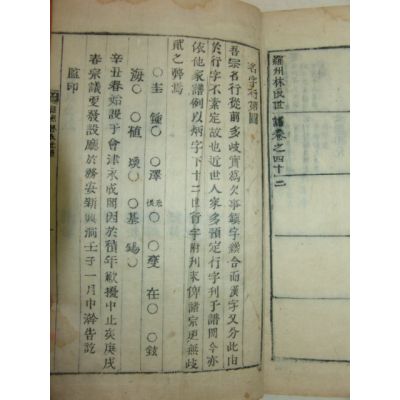 羅州林氏世譜卷之四十二
名字行列圖
吾宗名行從前多岐實爲欠事鎭字鍥合而漢字又分此由
於行字不素定故也近世人家多預定行字刊于譜間今亦
依他家譜例以炳字下十二世首字附刊來俾諸宗更無岐
貳之弊焉
○圭 鍾○ ○澤 ○ ○變 在○ ○鉉
海○ ○植 ○基 錫○
辛丑春始設于會津永成閣因於積年歉擾中止矣庚戌
春宗議更發設廳於務安新興洞壬子一月中澣告訖
監印